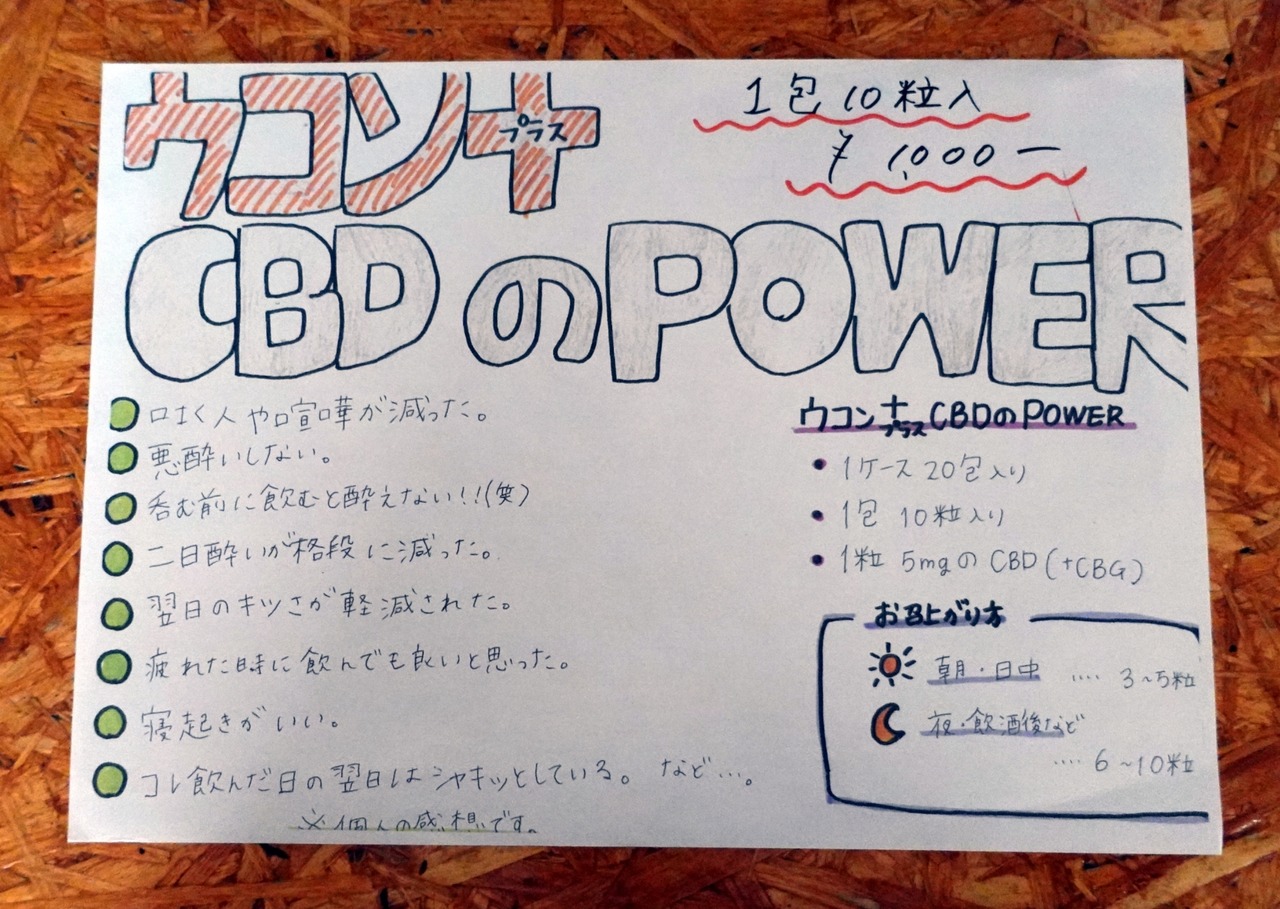 ウコン＋
プラス
1包 10粒入
¥ 1,000ー
CBDのPOWER
吐く人や喧嘩が減った。
悪酔いしない。
呑む前に飲むと酔えない!!(笑)
二日酔いが格段に減った。
翌日のキツさが軽減された。
疲れた時に飲んでも良いと思った。
寝起きがいい。
コレ飲んだ日の翌日はシャキッとしている。 など…。
※個人の感想です。
ウコン＋プラスCBDのPOWER
• 1ケース 20包入り
• 1包 10粒入り
• 1粒 5mgのCBD(+CBG)
お召上がり方
朝・日中 ‥‥ 3~5粒
夜・飲酒後など
‥‥ 6~10粒